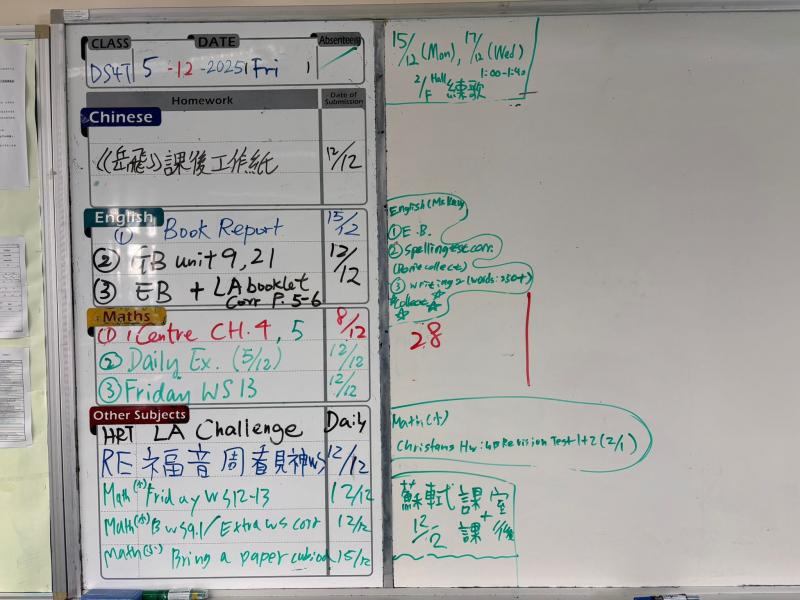 CLASS DATE Absentees
DS4T 5 -12 -2025 Fri
Homework Date of Submission
Chinese
《岳飛》課後工作紙 12/12
English
① Book Report 15/12
② GB unit 9, 21 12/12
③ EB + LA booklet
Corr P. 5-6
Maths
① iCentre CH. 4, 5 8/12
② Daily Ex. (5/12) 12/12
③ Friday WS 13 12/12
Other Subjects
HRT LA Challenge Daily
RE 福音周看見神 WS 12/12
Math(小) Friday WS 12-13 12/12
Math(小) B WS9.1/Extra WS corr 12/12
Math(小) Bring a paper 15/12
15/12 (Mon), 17/12 (Wed)
1:00-1:40
2/F Hall 練歌
English
① E.B.
② Spelling test corr.
③ writing 2 (words: 250+)
28
Math(小)
Christmas Hw: Revision Test 1+2 (2/1)
蘇軾 課室
12/12 + 課後